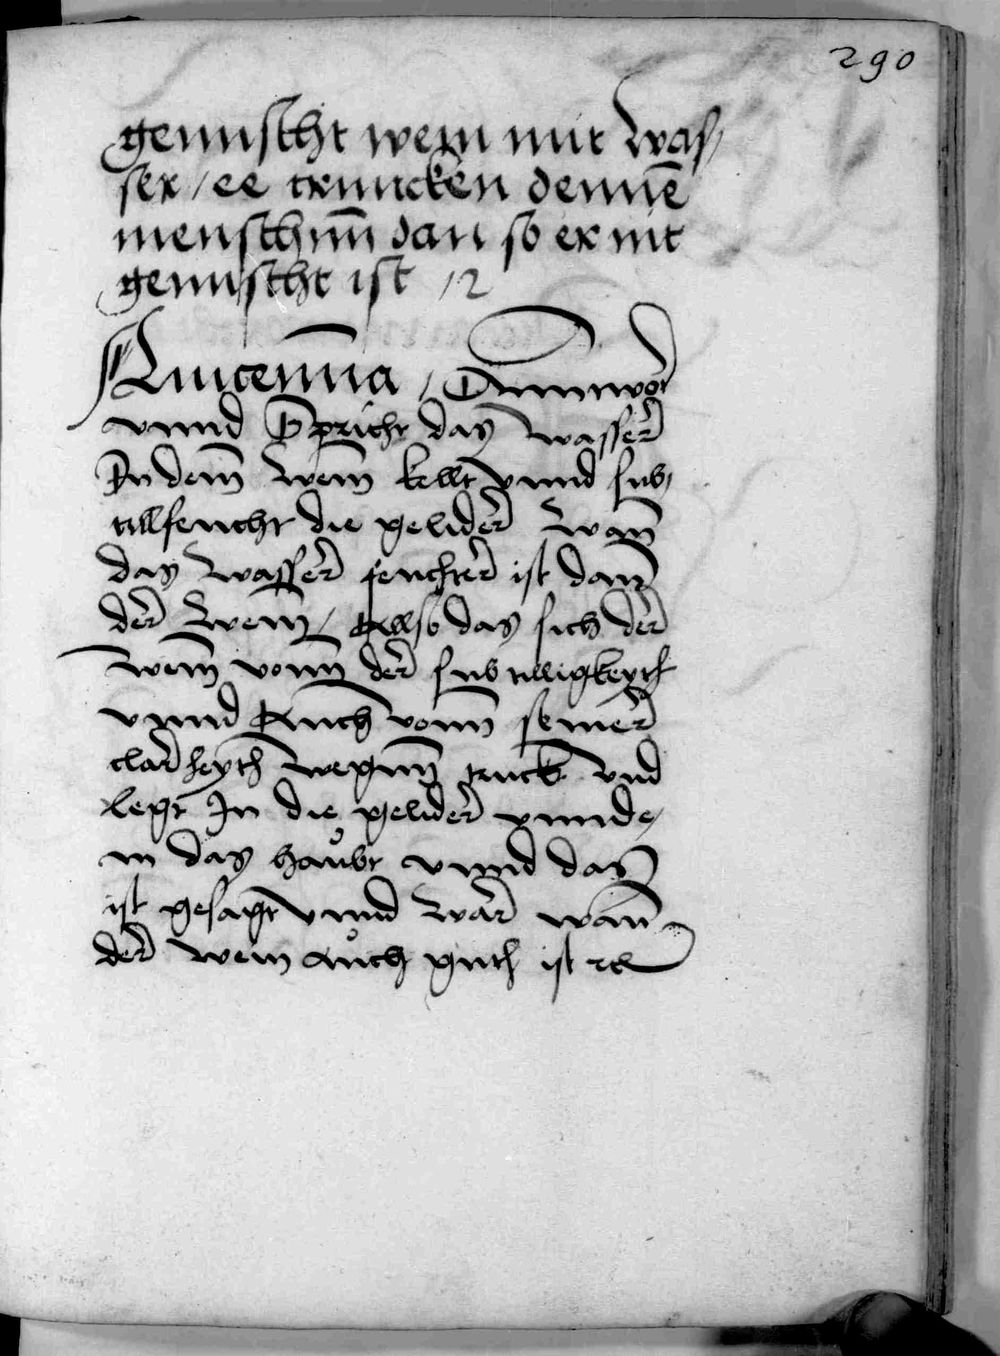 290
gemischt wein mit was/
ser / ee truncken dennē
menschn̄n dan so er nit
gemischt ist /
Auicenna / Anntwort
vnnd Spricht das wasser
In dem wein kellt vnnd sub/
till feucht die gelider wan
das wasser feuchter ist dann
der wein / Allso das sich der
wein vonn der subtilligkeyth
vnnd Auch vonn seiner
clarheyth wegnn truck vnd
legt In die gelider vnnde/
in das haubt vnnd das
ist gesagt vnnd war wann
der wein auch guth ist